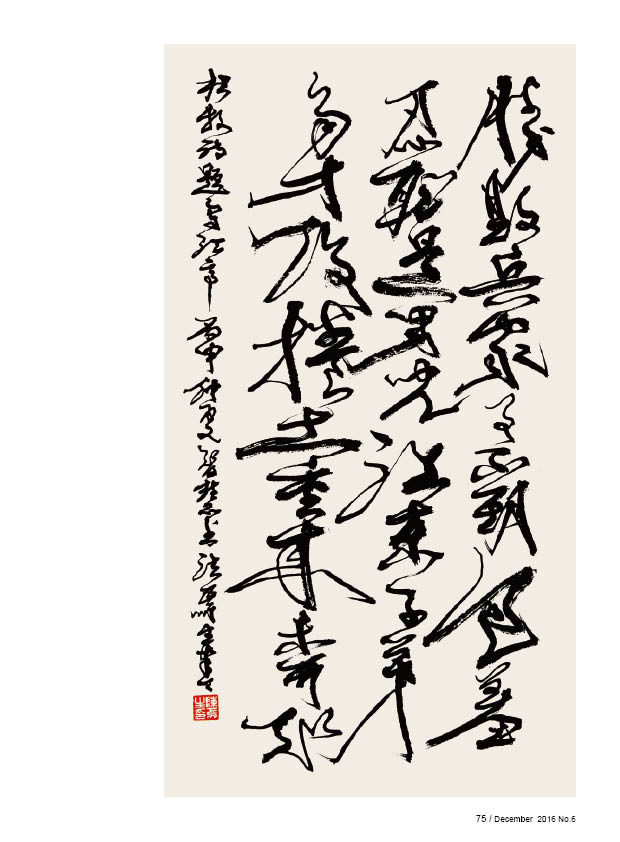 勝敗兵家事不期包羞
忍恥是男兒江東子弟
多才俊捲土重來未可知
杜牧詩題烏江亭 丙申
75 / December 2016 No.6